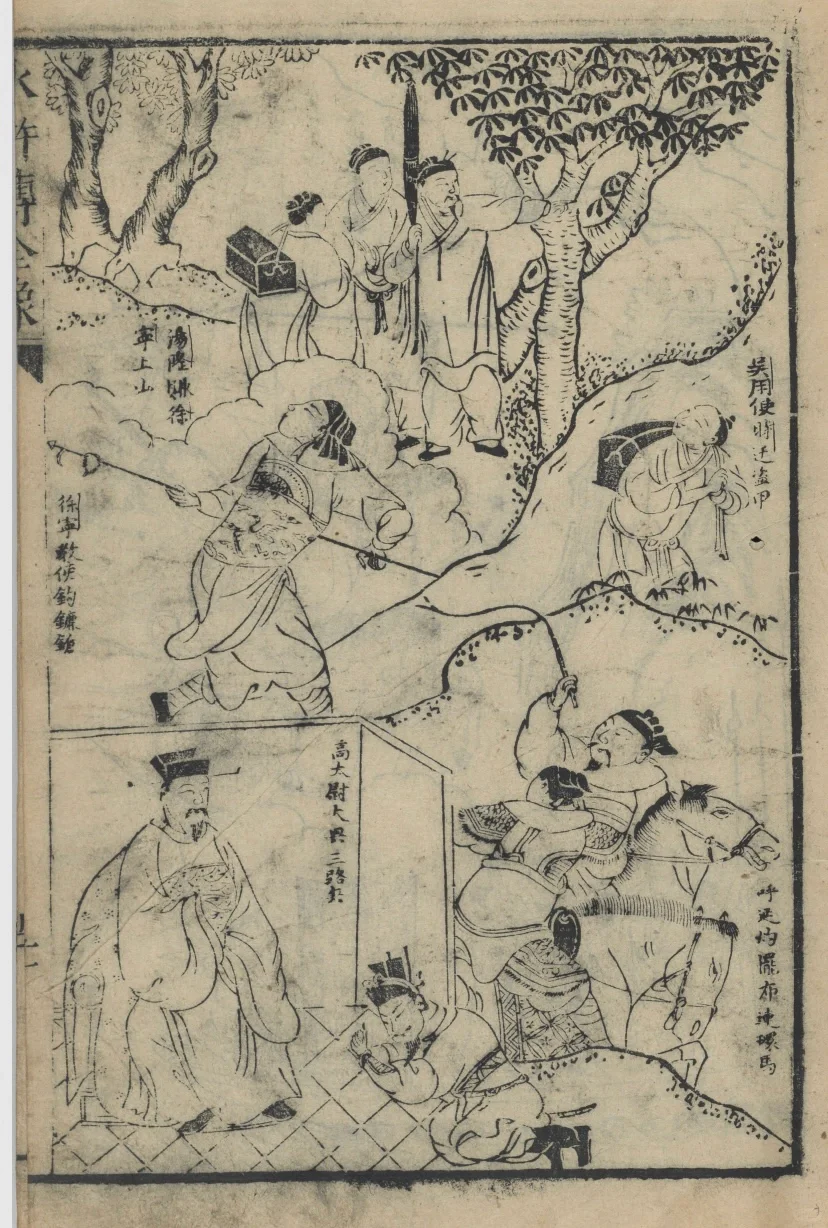 吳用使時迁盗甲
湯隆賺徐
寧上山
徐寧教使鈎鐮鎗
高太尉大興三路兵
呼延灼擺布連環馬
水滸傳全像